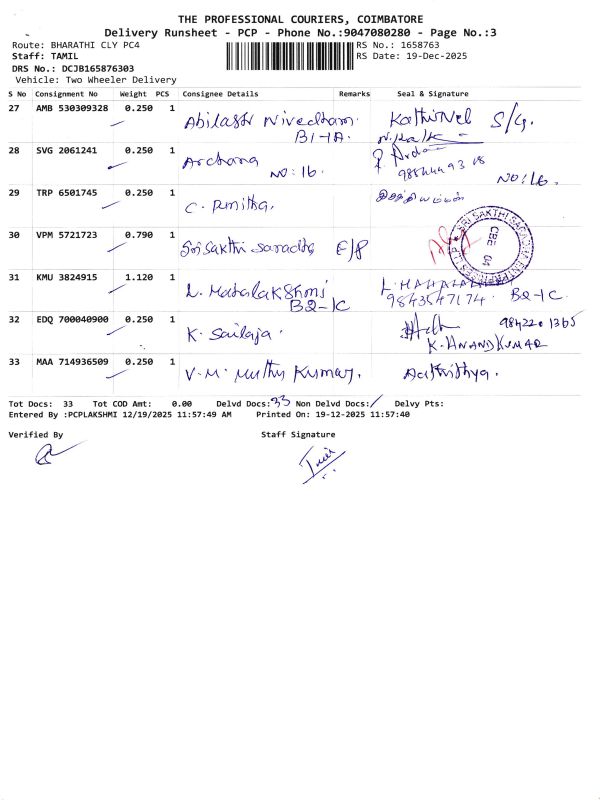 THE PROFESSIONAL COURIERS, COIMBATORE
Delivery Runsheet - PCP - Phone No.:9047080280 - Page No.:3
Route: BHARATHI CLY PC4 RS No.: 1658763
Staff: TAMIL RS Date: 19-Dec-2025
DRS No.: DCJB165876303
Vehicle: Two Wheeler Delivery
S No Consignment No Weight PCS Consignee Details Remarks Seal & Signature
27 AMB 530309328 0.250 1 Abilash Nivedham. Kathirvel S/G.
B1-1A.
28 SVG 2061241 0.250 1 Archana
NO: 16. NO: 16.
29 TRP 6501745 0.250 1 C. Pmitha.
30 VPM 5721723 0.790 1 Sri Sakthi Saradha E/P
SRI SAKTHI SARADHA ENTERPRISES LLP
CBE 04
31 KMU 3824915 1.120 1 L. Mahalakshmi L. MAHALAK
B2-1C 9843547174. B2-1C.
32 EDQ 700040900 0.250 1 K. Sailaja. 9842201365
K. ANAND KUMAR
33 MAA 714936509 0.250 1 V. M. Muthu Kumar. Aathithya.
Tot Docs: 33 Tot COD Amt: 0.00 Delvd Docs: 33 Non Delvd Docs: / Delvy Pts:
Entered By :PCPLAKSHMI 12/19/2025 11:57:49 AM Printed On: 19-12-2025 11:57:40
Verified By Staff Signature